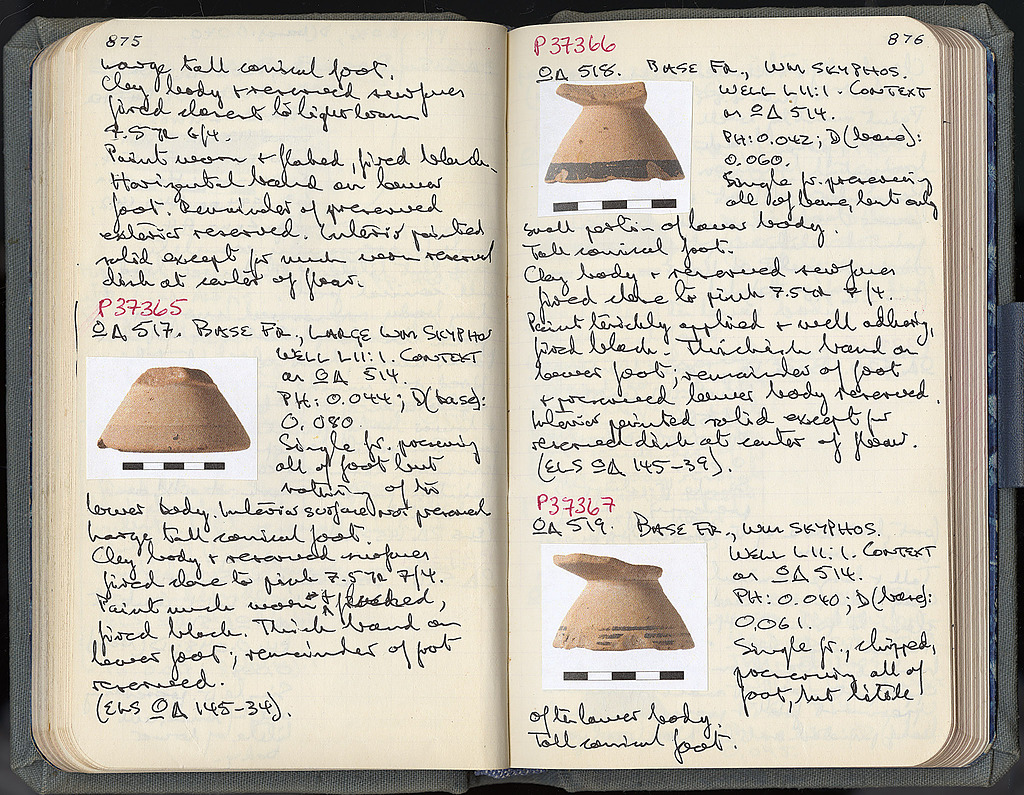 875
Large tall conical foot.
Clay body + reserved surfaces
fired closest to light brown
7.5YR 6/4.
Paint worn + flaked, fired black.
Horizontal band on lower
foot. Remainder of preserved
exterior reserved. Interior painted
solid except for much worn reserved
disk at center of floor.
P37365
ΟΔ 517. BASE FR., LARGE WM SKYPHOS
WELL L11:1. CONTEXT
as ΟΔ 514.
PH: 0.044; D(base):
0.080.
Single fr. preserving
all of foot but
nothing of the
lower body. Interior surface not preserved
Large tall conical foot.
Clay body + reserved surfaces
fired close to pink 7.5YR 7/4.
Paint much worn + flaked,
fired black. Thick band on
lower foot; remainder of foot
reserved.
(ELS ΟΔ 145-34).
876
P37366
ΟΔ 518. BASE FR., WM SKYPHOS.
WELL L11:1. CONTEXT
as ΟΔ 514.
PH: 0.042; D(base):
0.060.
Single fr. preserving
all of base, but only
small portion of lower body.
Tall conical foot.
Clay body + reserved surfaces
fired close to pink 7.5YR 7/4.
Paint thickly applied + well adhering,
fired black. Thickish band on
lower foot; remainder of foot
+ preserved lower body reserved.
Interior painted solid except for
reserved disk at center of floor.
(ELS ΟΔ 145-39).
P37367
ΟΔ 519. BASE FR., WM SKYPHOS.
WELL L11:1. CONTEXT
as ΟΔ 514.
PH: 0.040; D(base):
0.061.
Single fr., chipped,
preserving all of
foot, but little
of the lower body.
Tall conical foot.